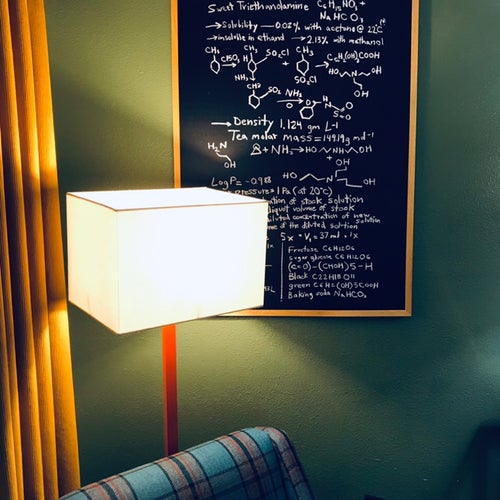 Sweet Triethanolamine C6H15NO3 +
NaHCO3
→Solubility — 0.02% with acetone @ 22°C
→insoluble in ethand → 2.13% with methanol
CH3 CH3 SO2Cl CH3 C6H2(OH)COOH
ClSO3 + HO N OH
NH3 SO2Cl OH
SO2 NH2
→ Density 1.124 gm L-1
Tea molar mass = 149.19 g mol-1
H2N OH + NH3 → HO NH OH
+ OH
HO N OH
Log P = -0.988
pressure 1 Pa (at 20°C)
ation of stock solution
liquot volume of stock
diluted concentration of new solution
me of the diluted soltion
Fructose C6H12O6
sugar glucose C6H12O6
(C=O)-(CHOH)5-H
Black C22H18O11
green C6H2(OH)3COOH
Baking soda NaHCO3